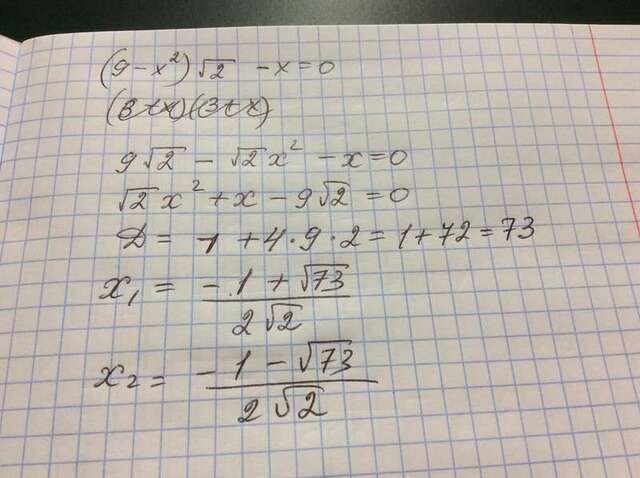 (9-x²)√2 -x=0
(3+x)(3+x)
9√2 - √2x² -x=0
√2x² +x -9√2 =0
D= 1 +4·9·2 = 1+72=73
x₁ = (-1+√73)/(2√2)
x₂ = (-1-√73)/(2√2)